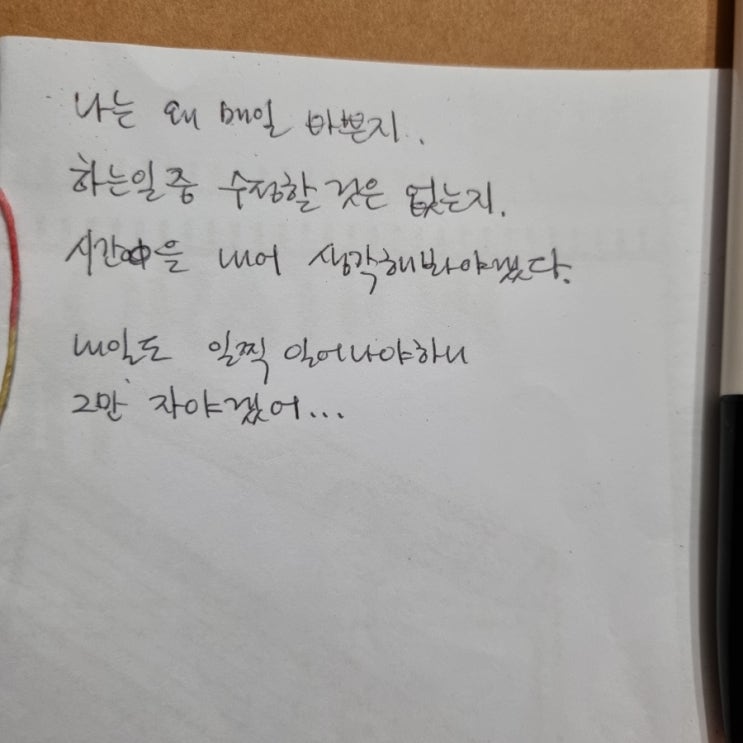 나는 왜 매일 바쁜지.
하는일중 수정할것은 없는지.
시간을 내어 생각해봐야겠다.
내일도 일찍 일어나야하니
그만 자야겠어...